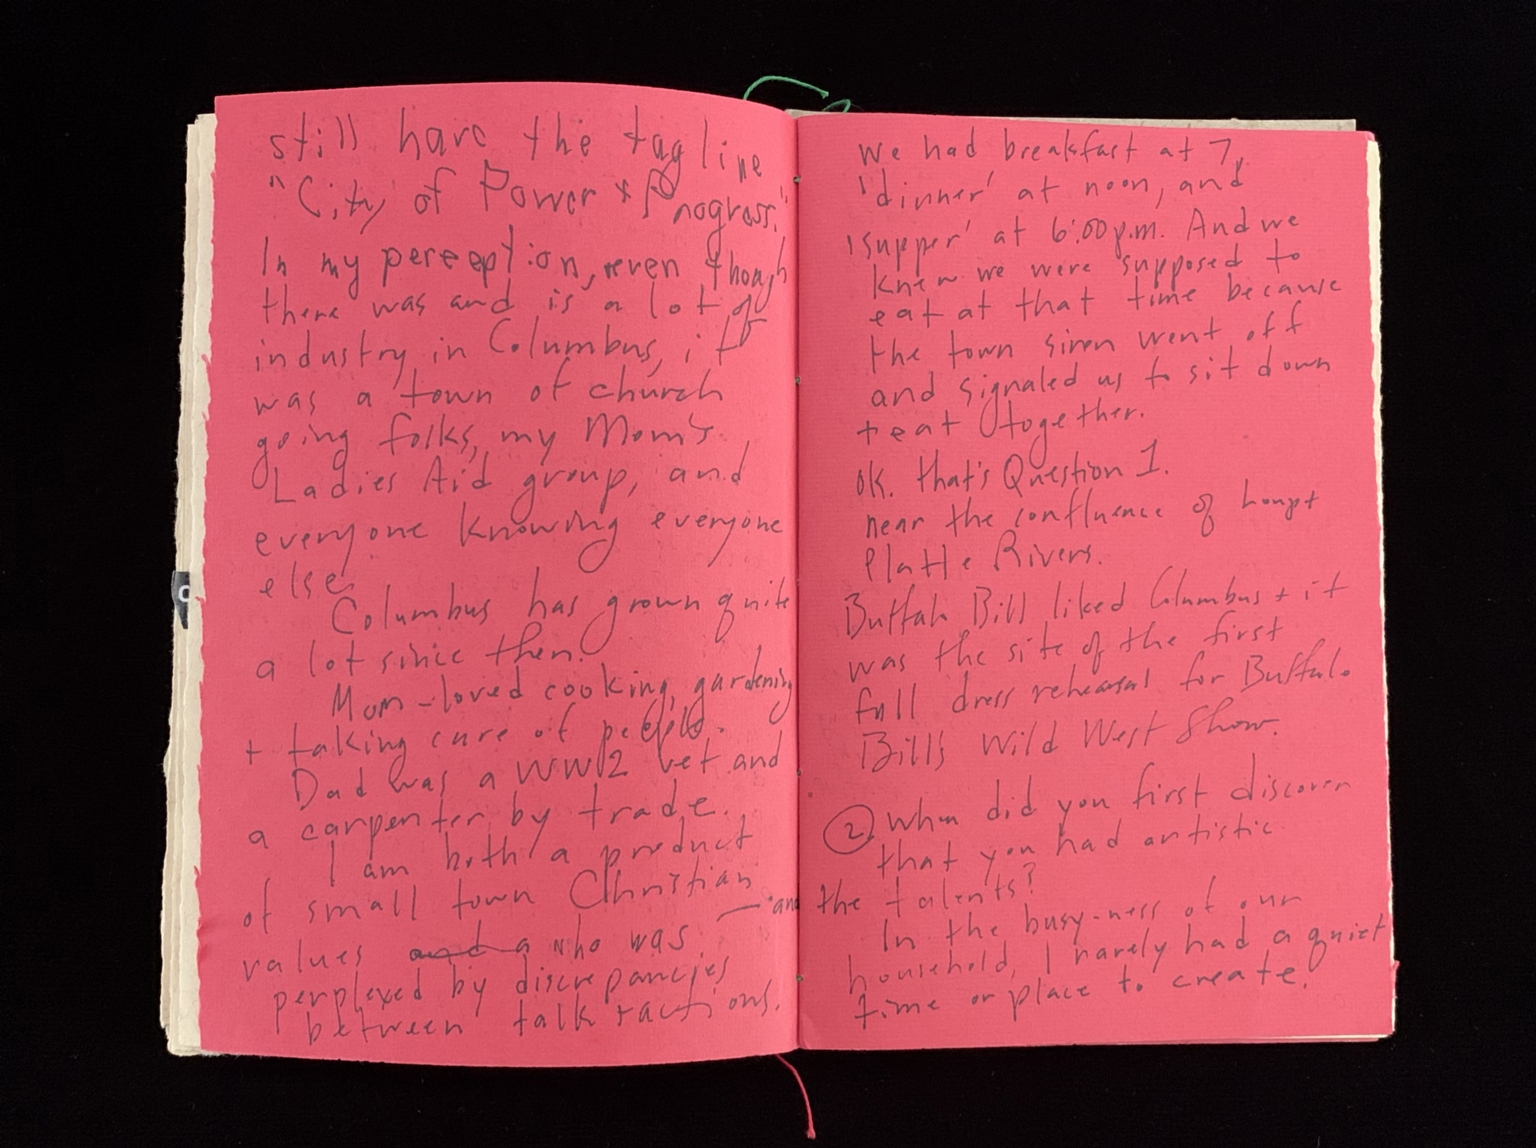 still have the tag line
"City of Power + Progress."
In my perception, even though
there was and is a lot of
industry in Columbus, it
was a town of church
going folks, my Mom's
Ladies Aid group, and
everyone knowing everyone
else.
Columbus has grown quite
a lot since then.
Mom - loved cooking, gardening
+ taking care of people.
Dad was a WW2 vet and
a carpenter by trade.
I am both a product
of small town Christian
values and a who was — and the
perplexed by discrepancies
between talk + actions.
We had breakfast at 7,
'dinner' at noon, and
'supper' at 6:00 p.m. And we
knew we were supposed to
eat at that time because
the town siren went off
and signaled us to sit down
+ eat together.
OK. that's Question 1.
near the confluence of Loup +
Platte Rivers.
Buffalo Bill liked Columbus + it
was the site of the first
full dress rehearsal for Buffalo
Bill's Wild West Show.
2. When did you first discover
that you had artistic
talents?
In the busy-ness of our
household, I rarely had a quiet
time or place to create.